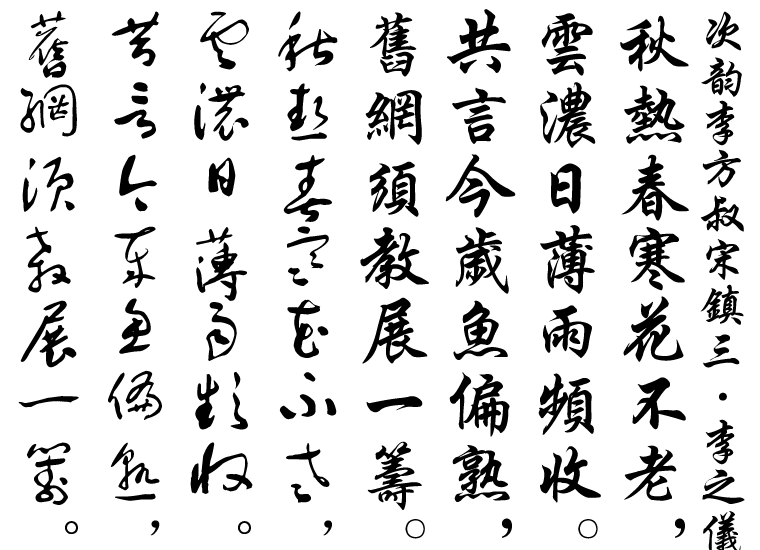 次韵李方叔宋鎮三·李之儀
秋熱春寒花不老，
雲濃日薄雨頻收。
共言今歲魚偏熟，
舊網須教展一籌。
秋熱春寒花不老，
雲濃日薄雨頻收。
共言今歲魚偏熟，
舊網須教展一籌。